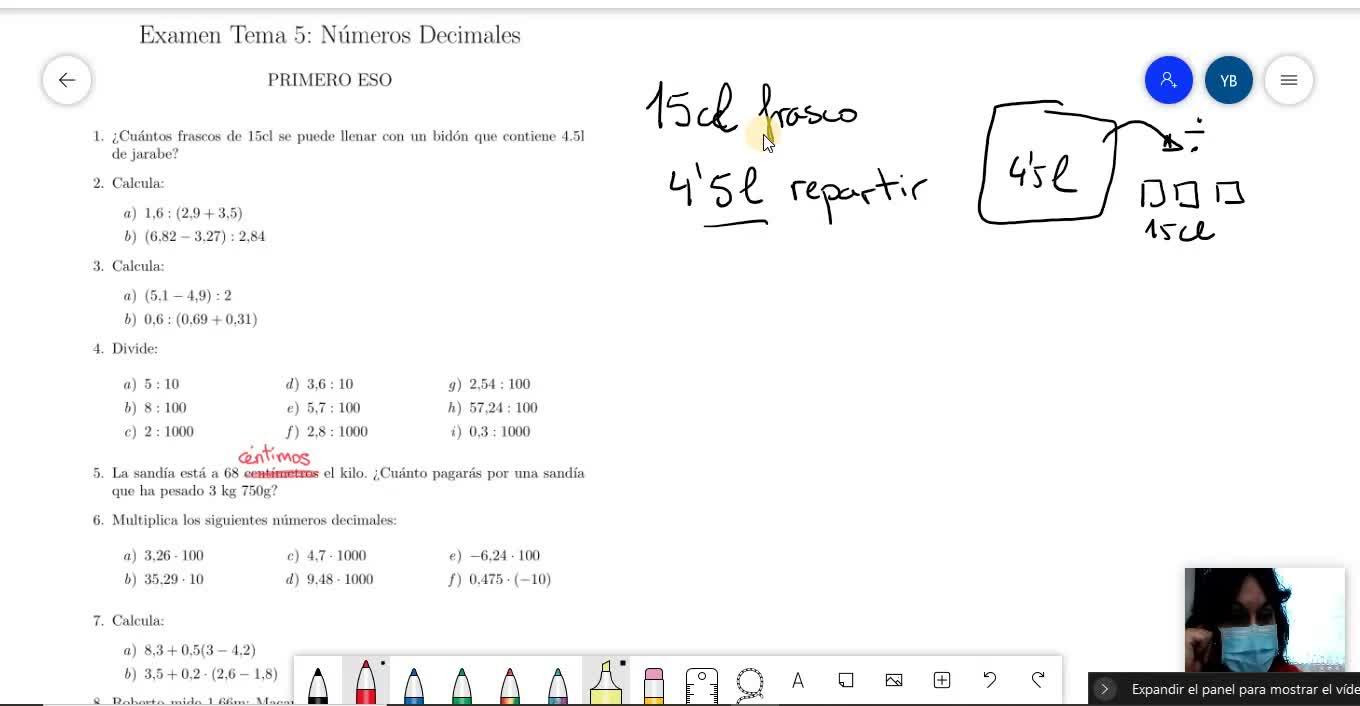 Examen Tema 5: Números Decimales
PRIMERO ESO
1. ¿Cuántos frascos de 15cl se puede llenar con un bidón que contiene 4.5l
de jarabe?
2. Calcula:
a) 1,6 : (2,9 + 3,5)
b) (6,82 − 3,27) : 2,84
3. Calcula:
a) (5,1 − 4,9) : 2
b) 0,6 : (0,69 + 0,31)
4. Divide:
a) 5 : 10 d) 3,6 : 10 g) 2,54 : 100
b) 8 : 100 e) 5,7 : 100 h) 57,24 : 100
c) 2 : 1000 f) 2,8 : 1000 i) 0,3 : 1000
céntimos
5. La sandía está a 68 centímetros el kilo. ¿Cuánto pagarás por una sandía
que ha pesado 3 kg 750g?
6. Multiplica los siguientes números decimales:
a) 3,26 · 100 c) 4,7 · 1000 e) −6,24 · 100
b) 35,29 · 10 d) 9,48 · 1000 f) 0,475 · (−10)
7. Calcula:
a) 8,3 + 0,5(3 − 4,2)
b) 3,5 + 0,2 · (2,6 − 1,8)
8. Roberto mide 1,66m;
15cl frasco
4'5l repartir
4'5l
÷
15cl
YB
A
Expandir el panel para mostrar el víde